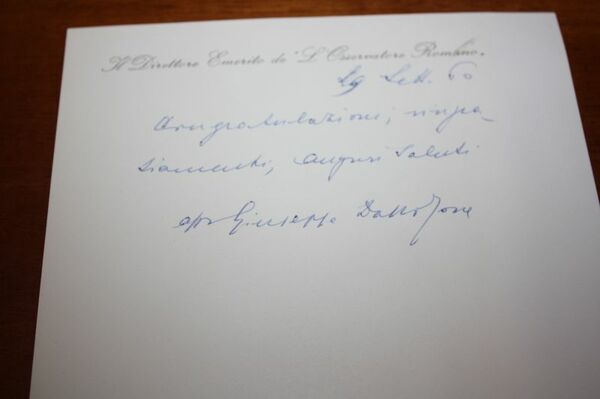 Il Direttore Emerito de "L'Osservatore Romano"
29 Sett. 60
Congratulazioni, ringra-
ziamenti, auguri saluti
Giuseppe Dalla Torre